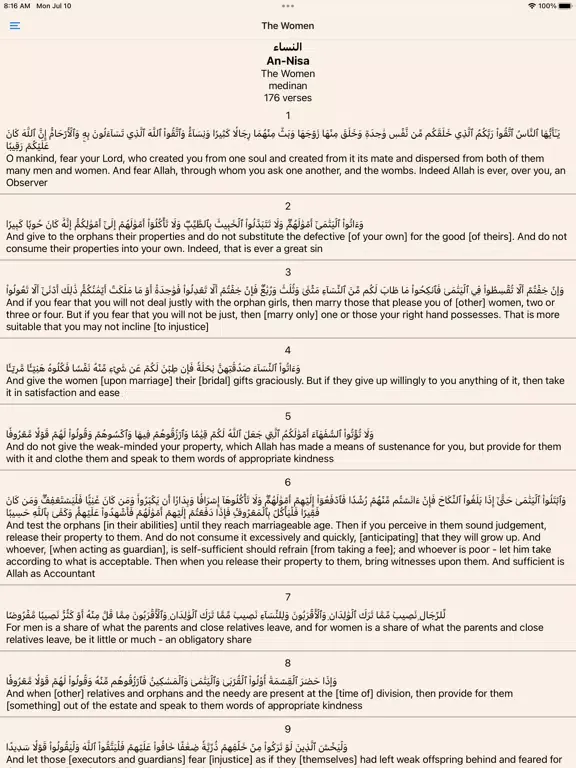 8:16 AM Mon Jul 10
100%
The Women
النساء
An-Nisa
The Women
medinan
176 verses
1
يَـٰٓأَيُّهَا ٱلنَّاسُ ٱتَّقُوا۟ رَبَّكُمُ ٱلَّذِي خَلَقَكُم مِّن نَّفْسٍ وَٰحِدَةٍ وَخَلَقَ مِنْهَا زَوْجَهَا وَبَثَّ مِنْهُمَا رِجَالًا كَثِيرًا وَنِسَآءً وَٱتَّقُوا۟ ٱللَّهَ ٱلَّذِي تَسَآءَلُونَ بِهِۦ وَٱلْأَرْحَامَ إِنَّ ٱللَّهَ كَانَ
عَلَيْكُمْ رَقِيبًا
O mankind, fear your Lord, who created you from one soul and created from it its mate and dispersed from both of them
many men and women. And fear Allah, through whom you ask one another, and the wombs. Indeed Allah is ever, over you, an
Observer
2
وَءَاتُوا۟ ٱلْيَتَـٰمَىٰٓ أَمْوَٰلَهُمْ وَلَا تَتَبَدَّلُوا۟ ٱلْخَبِيثَ بِٱلطَّيِّبِ وَلَا تَأْكُلُوٓا۟ أَمْوَٰلَهُمْ إِلَىٰٓ أَمْوَٰلِكُمْ إِنَّهُۥ كَانَ حُوبًا كَبِيرًا
And give to the orphans their properties and do not substitute the defective [of your own] for the good [of theirs]. And do not
consume their properties into your own. Indeed, that is ever a great sin
3
وَإِنْ خِفْتُمْ أَلَّا تُقْسِطُوا۟ فِي ٱلْيَتَـٰمَىٰ فَٱنكِحُوا۟ مَا طَابَ لَكُم مِّنَ ٱلنِّسَآءِ مَثْنَىٰ وَثُلَـٰثَ وَرُبَـٰعَ فَإِنْ خِفْتُمْ أَلَّا تَعْدِلُوا۟ فَوَٰحِدَةً أَوْ مَا مَلَكَتْ أَيْمَـٰنُكُمْ ذَٰلِكَ أَدْنَىٰٓ أَلَّا تَعُولُوا۟
And if you fear that you will not deal justly with the orphan girls, then marry those that please you of [other] women, two or
three or four. But if you fear that you will not be just, then [marry only] one or those your right hand possesses. That is more
suitable that you may not incline [to injustice]
4
وَءَاتُوا۟ ٱلنِّسَآءَ صَدُقَـٰتِهِنَّ نِحْلَةً فَإِن طِبْنَ لَكُمْ عَن شَيْءٍ مِّنْهُ نَفْسًا فَكُلُوهُ هَنِيٓـًٔا مَّرِيٓـًٔا
And give the women [upon marriage] their [bridal] gifts graciously. But if they give up willingly to you anything of it, then take
it in satisfaction and ease
5
وَلَا تُؤْتُوا۟ ٱلسُّفَهَآءَ أَمْوَٰلَكُمُ ٱلَّتِي جَعَلَ ٱللَّهُ لَكُمْ قِيَـٰمًا وَٱرْزُقُوهُمْ فِيهَا وَٱكْسُوهُمْ وَقُولُوا۟ لَهُمْ قَوْلًا مَّعْرُوفًا
And do not give the weak-minded your property, which Allah has made a means of sustenance for you, but provide for them
with it and clothe them and speak to them words of appropriate kindness
6
وَٱبْتَلُوا۟ ٱلْيَتَـٰمَىٰ حَتَّىٰٓ إِذَا بَلَغُوا۟ ٱلنِّكَاحَ فَإِنْ ءَانَسْتُم مِّنْهُمْ رُشْدًا فَٱدْفَعُوٓا۟ إِلَيْهِمْ أَمْوَٰلَهُمْ وَلَا تَأْكُلُوهَآ إِسْرَافًا وَبِدَارًا أَن يَكْبَرُوا۟ وَمَن كَانَ غَنِيًّا فَلْيَسْتَعْفِفْ وَمَن كَانَ
فَقِيرًا فَلْيَأْكُلْ بِٱلْمَعْرُوفِ فَإِذَا دَفَعْتُمْ إِلَيْهِمْ أَمْوَٰلَهُمْ فَأَشْهِدُوا۟ عَلَيْهِمْ وَكَفَىٰ بِٱللَّهِ حَسِيبًا
And test the orphans [in their abilities] until they reach marriageable age. Then if you perceive in them sound judgement,
release their property to them. And do not consume it excessively and quickly, [anticipating] that they will grow up. And
whoever, [when acting as guardian], is self-sufficient should refrain [from taking a fee]; and whoever is poor - let him take
according to what is acceptable. Then when you release their property to them, bring witnesses upon them. And sufficient is
Allah as Accountant
7
لِّلرِّجَالِ نَصِيبٌ مِّمَّا تَرَكَ ٱلْوَٰلِدَانِ وَٱلْأَقْرَبُونَ وَلِلنِّسَآءِ نَصِيبٌ مِّمَّا تَرَكَ ٱلْوَٰلِدَانِ وَٱلْأَقْرَبُونَ مِمَّا قَلَّ مِنْهُ أَوْ كَثُرَ نَصِيبًا مَّفْرُوضًا
For men is a share of what the parents and close relatives leave, and for women is a share of what the parents and close
relatives leave, be it little or much - an obligatory share
8
وَإِذَا حَضَرَ ٱلْقِسْمَةَ أُو۟لُوا۟ ٱلْقُرْبَىٰ وَٱلْيَتَـٰمَىٰ وَٱلْمَسَـٰكِينُ فَٱرْزُقُوهُم مِّنْهُ وَقُولُوا۟ لَهُمْ قَوْلًا مَّعْرُوفًا
And when [other] relatives and orphans and the needy are present at the [time of] division, then provide for them
[something] out of the estate and speak to them words of appropriate kindness
9
وَلْيَخْشَ ٱلَّذِينَ لَوْ تَرَكُوا۟ مِنْ خَلْفِهِمْ ذُرِّيَّةً ضِعَـٰفًا خَافُوا۟ عَلَيْهِمْ فَلْيَتَّقُوا۟ ٱللَّهَ وَلْيَقُولُوا۟ قَوْلًا سَدِيدًا
And let those [executors and guardians] fear [injustice] as if they [themselves] had left weak offspring behind and feared for